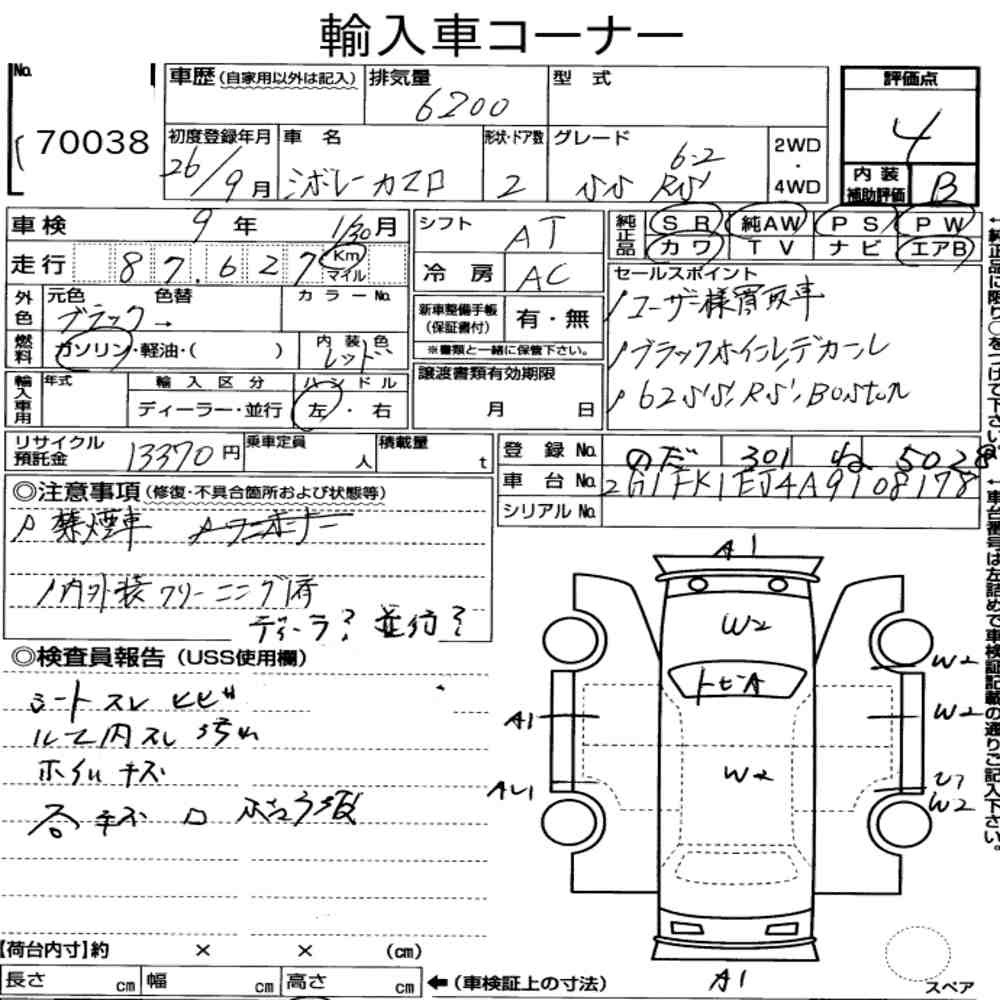 輸入車コーナー
No. 70038
車歴 (自家用以外は記入) 排気量 6200 型式
初度登録年月 26/9月 車名 シボレーカマロ 形状・ドア数 2 グレード SS RS 6-2 2WD・4WD
評価点 4
内装補助評価 B
車検 9年 1/30月
走行 87,627 Km マイル
外色 元色 ブラック→ 色替 カラーNo.
燃料 ガソリン・軽油・( ) 内装色 レッド
輸入車用 年式 輸入区分 ディーラー・並行 ハンドル 左・右
シフト AT
冷房 AC
新車整備手帳(保証書付) 有・無
※書類と一緒に保管下さい。
譲渡書類有効期限 月 日
純正品 SR 純AW PS PW
カワ TV ナビ エアB
セールスポイント
ユーザー様買取車
ブラックホイルデカール
62SS RS Boston
←純正品に限り○をつけて下さい。
リサイクル預託金 13370円 乗車定員 人 積載量 t
登録No. のだ 301 ね 5028
車台No. 2G1FK1EJ4A9108178
シリアルNo.
←車台番号は左詰めで車検証記載の通りご記入下さい。
◎注意事項 (修復・不具合箇所および状態等)
禁煙車 ワンオーナー
内外装クリーニング済
ディーラ? 並行?
◎検査員報告 (USS使用欄)
シートスレ ヒビ
ルーフ内スレ 汚れ
ホイルキズ
A1
W2
トビA
W2
W2
A1
W2
AU1
W2
A1
スペア
【荷台内寸】約 × × (cm)
長さ cm 幅 cm 高さ cm ←(車検証上の寸法)